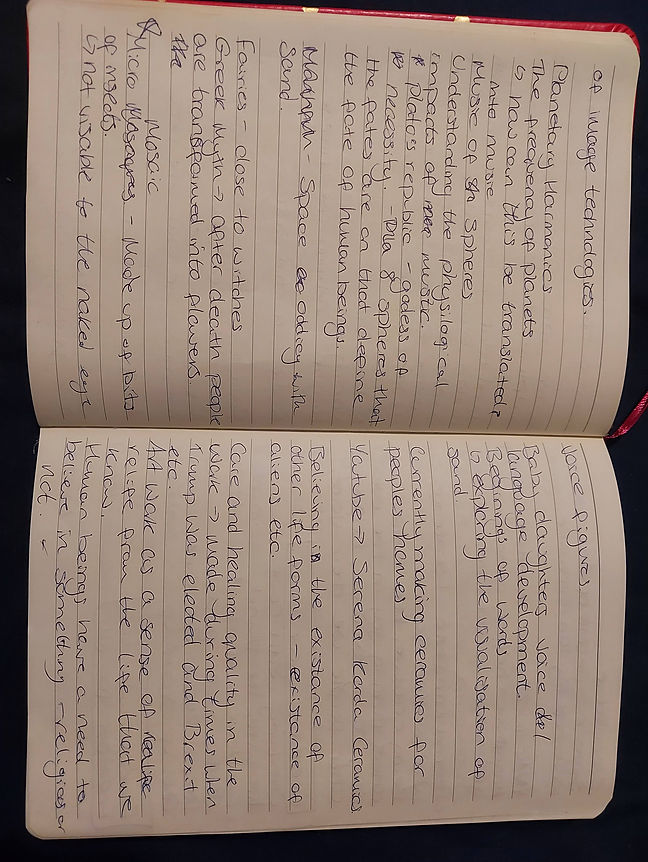 of image technologies.
Planetary Harmonics
The frequency of planets
↳ how can this be translated
into music?
Music of Spheres
Understanding the physilogical
impacts of music.
* Platos republic - godess of
necessity. - 8 spheres that
the fates are on that define
the fate of human beings.
- Space oddity with
sand.
Fairies - close to witches
Greek Myth → after death people
are transformed into flowers.
Mosaic
Micro - Made up of bits
of insects.
↳ not visable to the naked eye
Voice figures
Baby daughters voice
language development.
Beginings of words
↳ exploring the visualisation of
sound
Currently making ceramics for
peoples homes
Yutube → Serena Korda Ceramics
Believing in the existance of
other life forms - existence of
aliens etc.
Care and healing quality in the
work → made during times when
Trump was elected and Brexit
etc.
Art work as a sense of
relife from the life that we
know.
Human beings have a need to
believe in something - religious or
not.